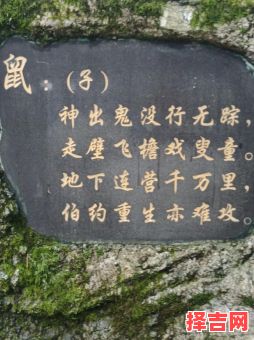 鼠（子）
神出鬼没行无踪，
走壁飞檐戏叟童。
地下连营千万里，
伯约重生亦难攻。
择吉网